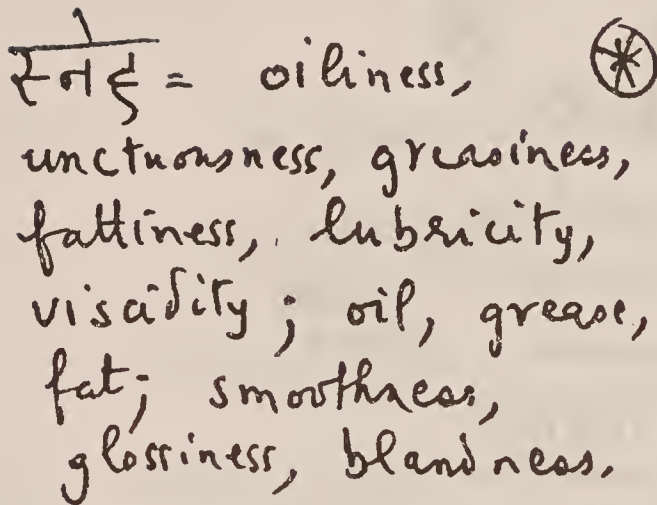 स्नेह = oiliness,
unctuousness, greasiness,
fattiness, lubricity,
viscidity; oil, grease,
fat; smoothness,
glossiness, blandness.